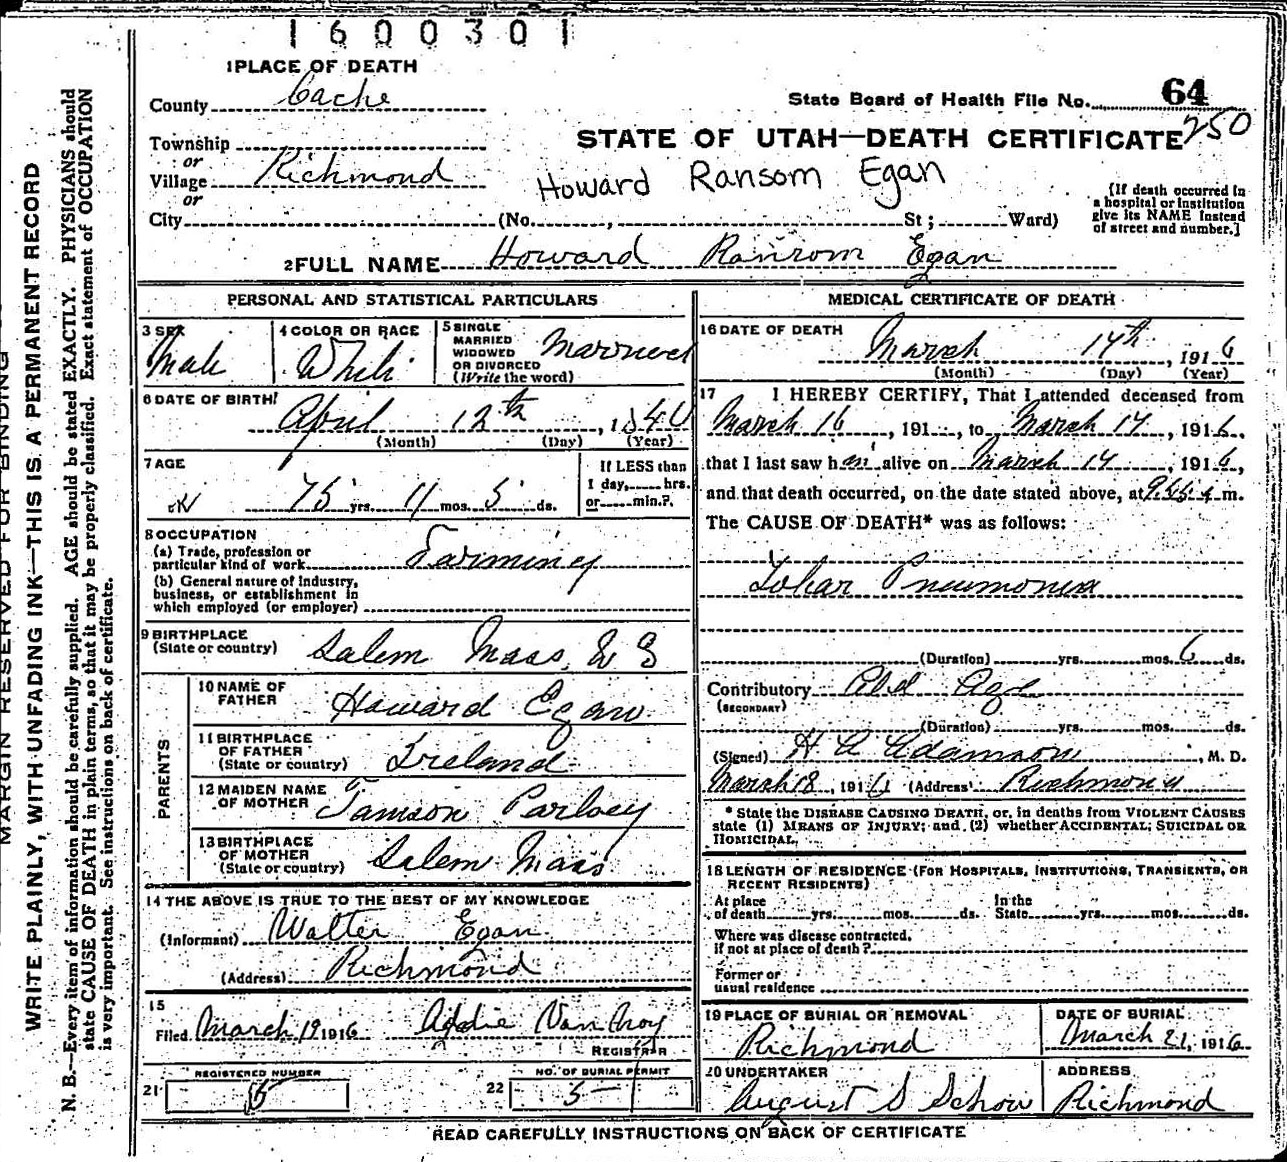 1600301
1 PLACE OF DEATH
County Cache
State Board of Health File No. 64
250
Township
or
Village Richmond
or
STATE OF UTAH—DEATH CERTIFICATE
Howard Ransom Egan
City (No. , St; Ward)
[If death occurred in a hospital or institution give its NAME instead of street and number.]
2 FULL NAME Howard Ransom Egan
PERSONAL AND STATISTICAL PARTICULARS
3 SEX Male
4 COLOR OR RACE White
5 SINGLE MARRIED WIDOWED OR DIVORCED (Write the word) Married
6 DATE OF BIRTH
April 12th, 1840
(Month) (Day) (Year)
7 AGE
75 yrs. 11 mos. 5 ds.
If LESS than 1 day, hrs. or min.?
8 OCCUPATION
(a) Trade, profession or particular kind of work Farming
(b) General nature of Industry, business, or establishment in which employed (or employer)
9 BIRTHPLACE (State or country) Salem Mass.
PARENTS
10 NAME OF FATHER Howard Egan
11 BIRTHPLACE OF FATHER (State or country) Ireland
12 MAIDEN NAME OF MOTHER Tamson
13 BIRTHPLACE OF MOTHER (State or country) Salem Mass
14 THE ABOVE IS TRUE TO THE BEST OF MY KNOWLEDGE
(Informant) Walter Egan
(Address) Richmond
15
Filed March 19 1916 Addie Van
REGISTRAR
REGISTERED NUMBER
21
NO. OF BURIAL PERMIT
22 5
MEDICAL CERTIFICATE OF DEATH
16 DATE OF DEATH
March 14th, 1916
(Month) (Day) (Year)
17 I HEREBY CERTIFY, That I attended deceased from
March 16, 191 , to March 14, 1916,
that I last saw h alive on March 14, 1916,
and that death occurred, on the date stated above, at m.
The CAUSE OF DEATH* was as follows:
Lobar Pneumonia
(Duration) yrs. mos. 6 ds.
Contributory Old Age
(SECONDARY)
(Duration) yrs. mos. ds.
(Signed) H A Adamson, M. D.
March 18, 1916 (Address) Richmond
* State the DISEASE CAUSING DEATH, or, in deaths from VIOLENT CAUSES
state (1) MEANS OF INJURY; and (2) whether ACCIDENTAL, SUICIDAL OR
HOMICIDAL.
18 LENGTH OF RESIDENCE (FOR HOSPITALS, INSTITUTIONS, TRANSIENTS, OR
RECENT RESIDENTS)
At place of death yrs. mos. ds. In the State yrs. mos. ds.
Where was disease contracted,
if not at place of death?
Former or
usual residence
19 PLACE OF BURIAL OR REMOVAL
Richmond
DATE OF BURIAL
March 21, 1916
20 UNDERTAKER
August S Schow
ADDRESS
Richmond
READ CAREFULLY INSTRUCTIONS ON BACK OF CERTIFICATE
MARGIN RESERVED FOR BINDING
WRITE PLAINLY, WITH UNFADING INK—THIS IS A PERMANENT RECORD
N. B.—Every item of information should be carefully supplied. AGE should be stated EXACTLY. PHYSICIANS should
state CAUSE OF DEATH in plain terms, so that it may be properly classified. Exact statement of OCCUPATION
is very important. See instructions on back of certificate.